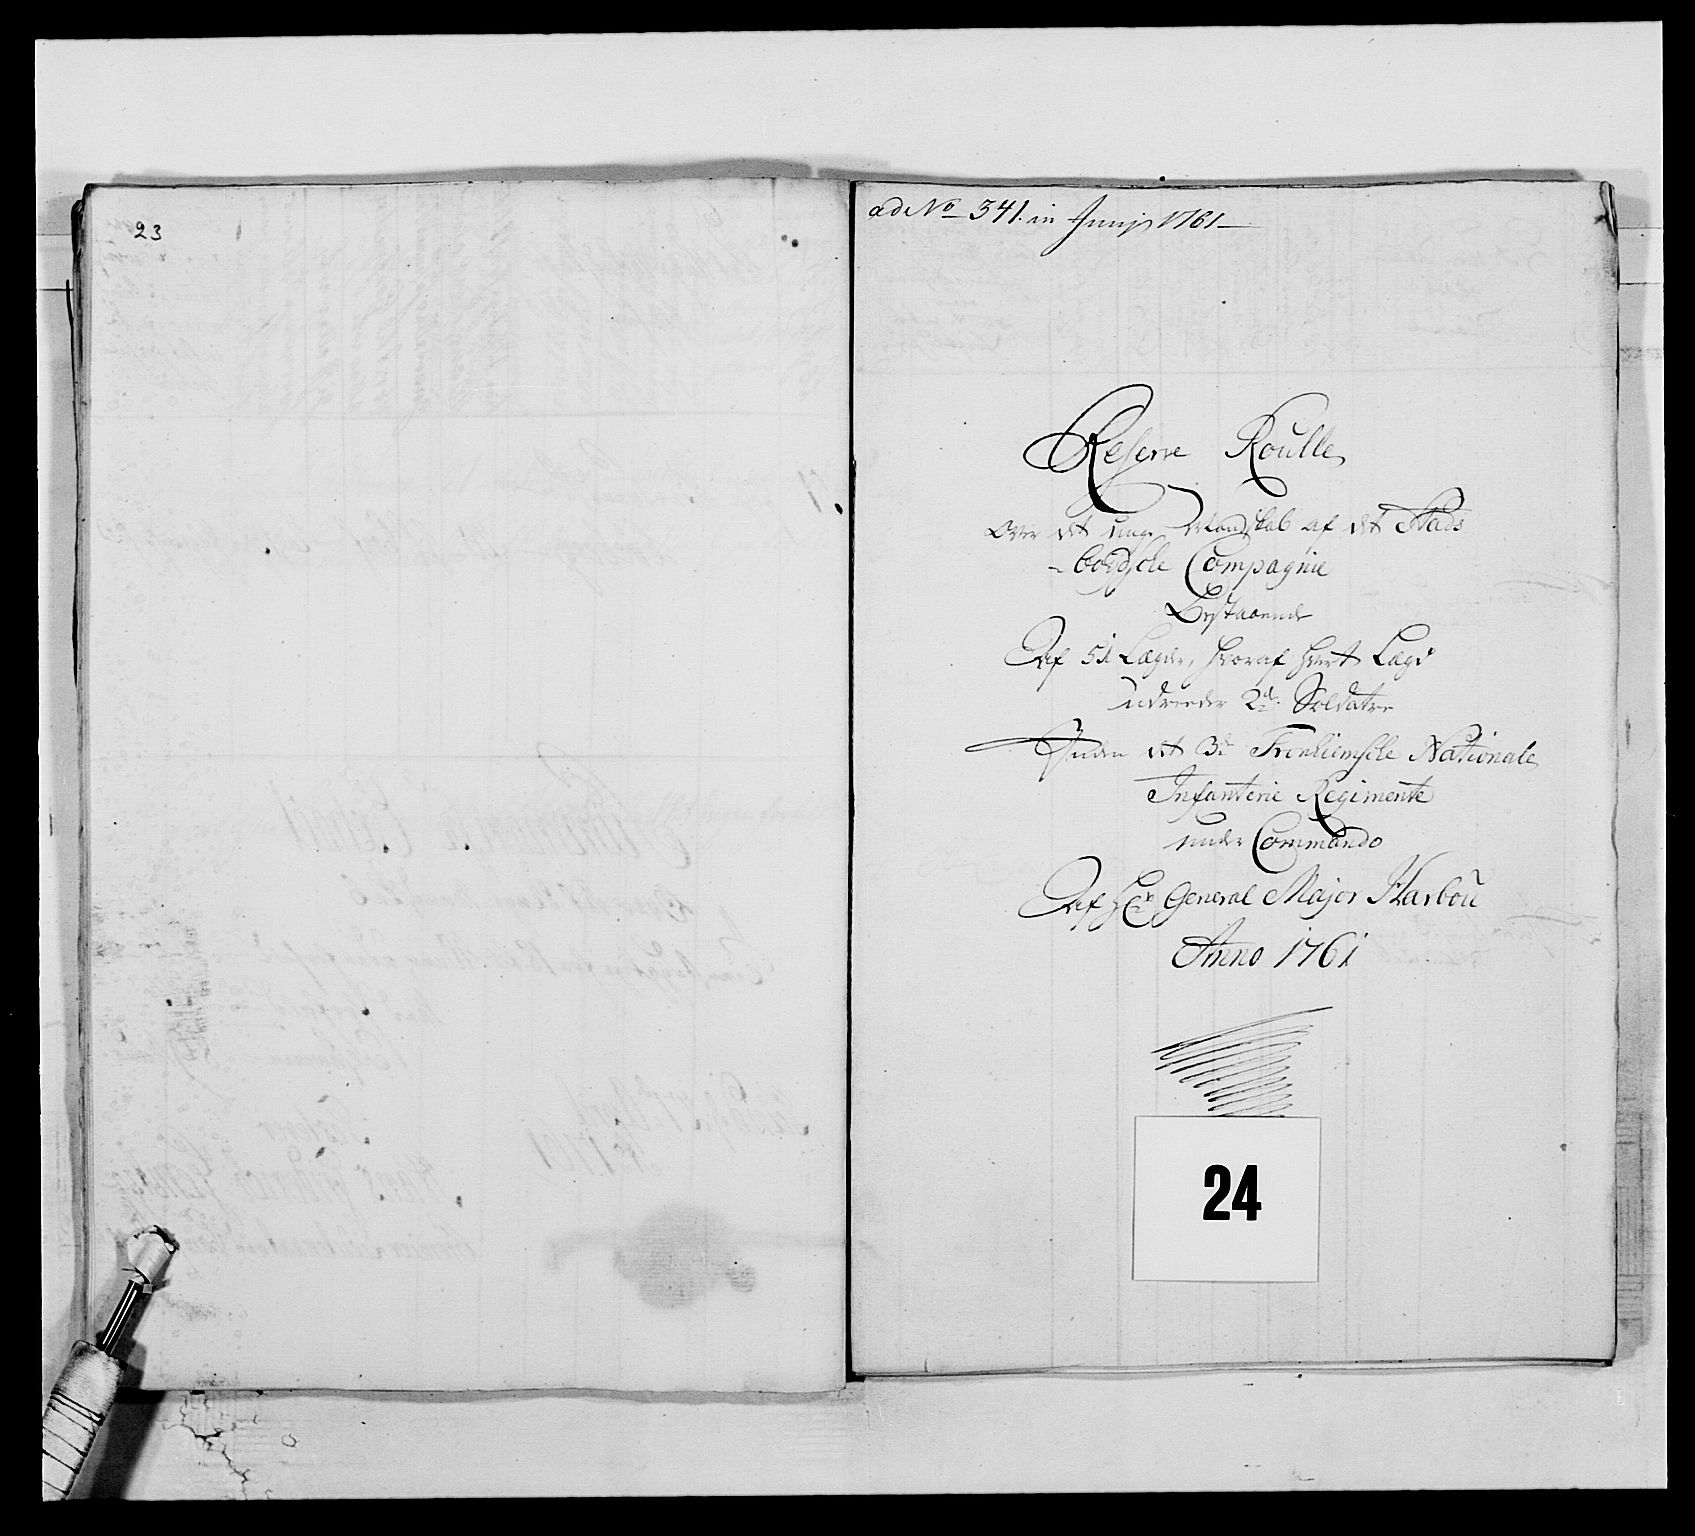 23
ad No 341. in Junij 1761
Reserve Roulle
Over det unge Mandskab af det Stads
-boydsche Compagnie
Bestaaende
Af 51 Lægder, hvoraf hvert Lægd
udreeder 2de Soldater
Under det 3de Tronhiemsche Nationale
Infanterie Regimente
under Commando
Af Hr General Major Harbou
Anno 1761
24